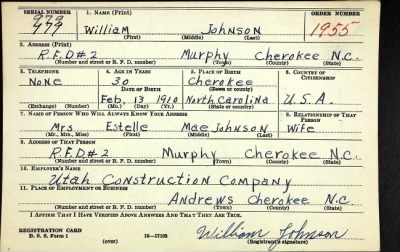 SERIAL NUMBER 1. NAME (Print) ORDER NUMBER
979
979 William Johnson 1955
(First) (Middle) (Last)
2. ADDRESS (Print)
R.F.D#2 Murphy Cherokee N.C.
(Number and street or R. F. D. number) (Town) (County) (State)
3. TELEPHONE 4. AGE IN YEARS 5. PLACE OF BIRTH 6. COUNTRY OF CITIZENSHIP
None 30 Cherokee
DATE OF BIRTH (Town or county)
Feb. 13 1910 North Carolina U.S.A.
(Exchange) (Number) (Mo.) (Day) (Yr.) (State or country)
7. NAME OF PERSON WHO WILL ALWAYS KNOW YOUR ADDRESS 8. RELATIONSHIP OF THAT PERSON
Mrs Estelle Mae Johnson Wife
(Mr., Mrs., Miss) (First) (Middle) (Last)
9. ADDRESS OF THAT PERSON
R.F.D#2 Murphy Cherokee N.C.
(Number and street or R. F. D. number) (Town) (County) (State)
10. EMPLOYER'S NAME
Utah Construction Company
11. PLACE OF EMPLOYMENT OR BUSINESS
Andrews Cherokee N.C.
(Number and street or R. F. D. number) (Town) (County) (State)
I AFFIRM THAT I HAVE VERIFIED ABOVE ANSWERS AND THAT THEY ARE TRUE.
REGISTRATION CARD
D. S. S. Form 1 16—17105 William Johnson
(over) (Registrant's signature)